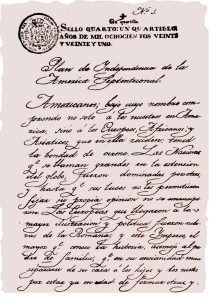 Nº 3
SELLO QUARTO: UN QUARTILLO
AÑOS DE MIL OCHOCIENTOS VEINTE
Y VEINTE Y UNO.
Plan de Independencia de la
America Septentrional.
Americanos, bajo cuyo nombre com-
prendo no solo á los nacidos en
America, sino á los Europeos, Africanos y
Asiaticos que en ella residen, tened
la bondad de oirme. Las Naciones
que se llaman grandes en la extension
del globo, fueron dominadas por otras
y hasta que sus luces no les permitieron
fijar su propia opinion no se emanci-
paron. Las Europeas que llegaron á la
mayor ilustracion y politica, fueron escla-
vas de la Romana; y este Imperio, el
mayor que conoce la historia, asemejó al pa-
dre de familias, que en su ancianidad mira
separarse de su casa á los hijos y los nietos
por estar ya en edad de formar otras, y